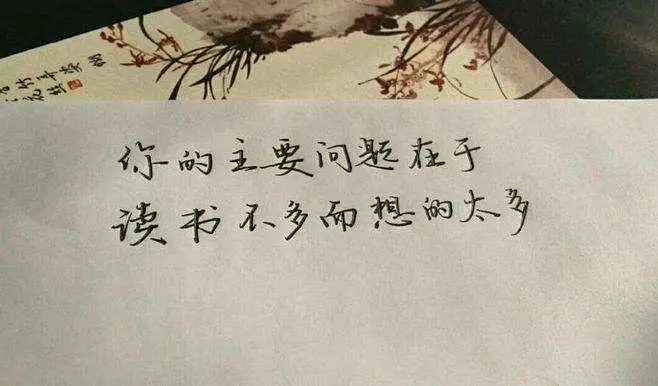 你的主要问题在于
读书不多而想的太多